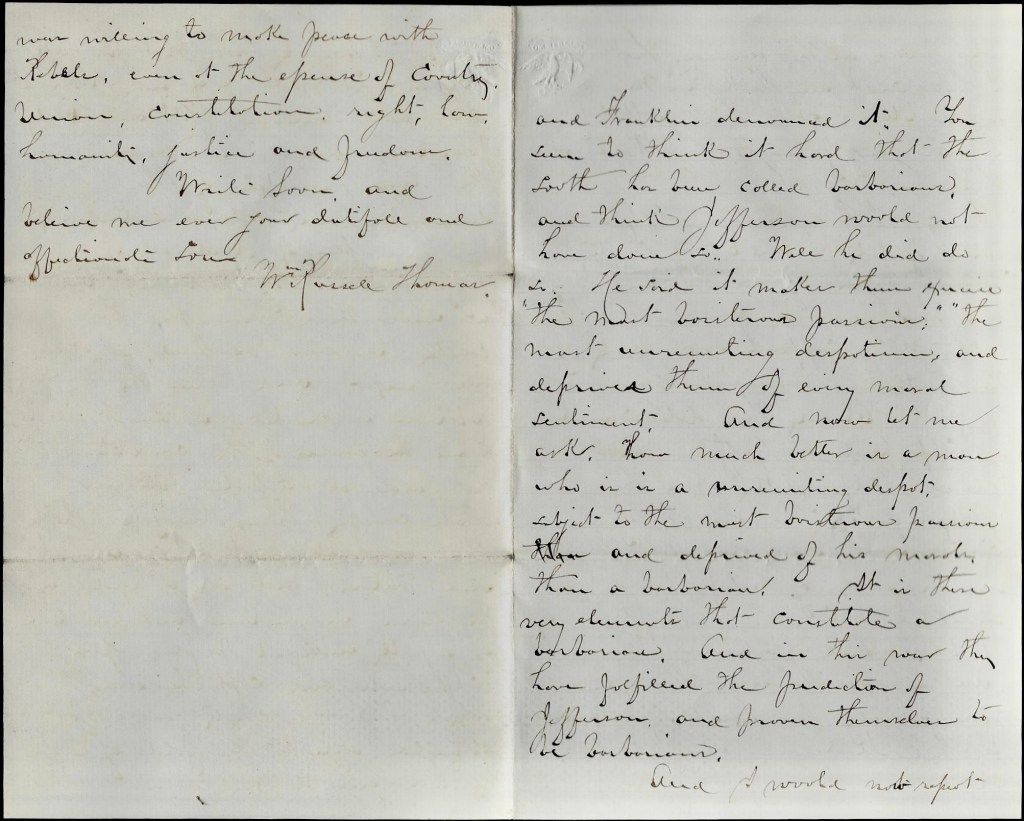 was willing to make peace with
Rebels, even at the expense of Country,
Union, constitution, right, law,
humanity, justice and freedom.
Write soon, and
believe me ever your dutifull and
affectionate son
Wm Russell Thomas.
and Franklin denounced it. You
seem to think it hard that the
South has been called barbarians,
and think Jefferson would not
have done so. Well he did do
so. He said it makes them
"the most boisterous passions," "the
most unremiting despotism, and
deprives them of every moral
sentiment. And now let me
ask. How much better is a man
who is is a unremiting despot,
subject to the most boisterous passions
and deprived of his morals,
than a barbarian. It is these
very elements that constitute a
barbarian. And in this war they
have fulfilled the prediction of
Jefferson, and proven themselves to
be barbarians.
And I would not repeat